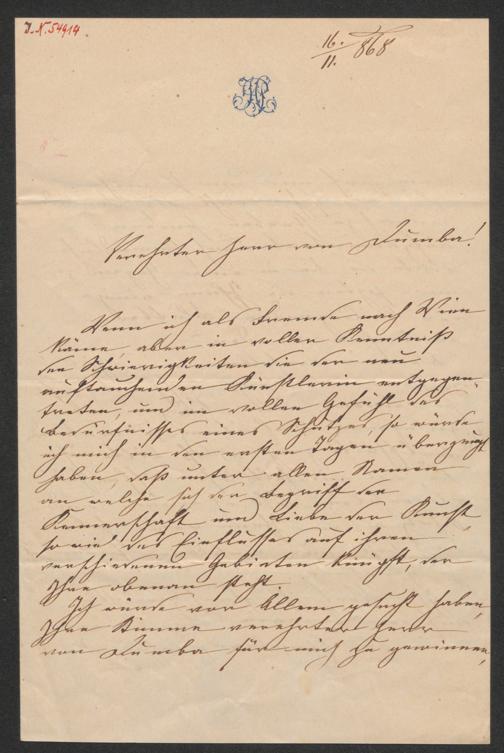 I. N. 54914
16./11. 868
Verehrter Herr von Dumba!
Wenn ich als Fremde nach Wien
käme aber in voller Kenntniß
der Schwierigkeiten die der neu
auftauchenden Künstlerin entgegen
treten, und im vollen Gefühl des
Bedürfnisses eines Schutzes, so würde
ich mich in den ersten Tagen überzeugt
haben, daß unter allen Namen
an welche sich der Begriff der
Kennerschaft und Liebe der Kunst,
sowie des Einflusses auf ihren
verschiedenen Gebieten knüpft, der
Ihre obenan steht.
Ich würde vor Allem gesucht haben,
Ihre Stimme verehrter Herr
von Dumba für mich zu gewinnen,